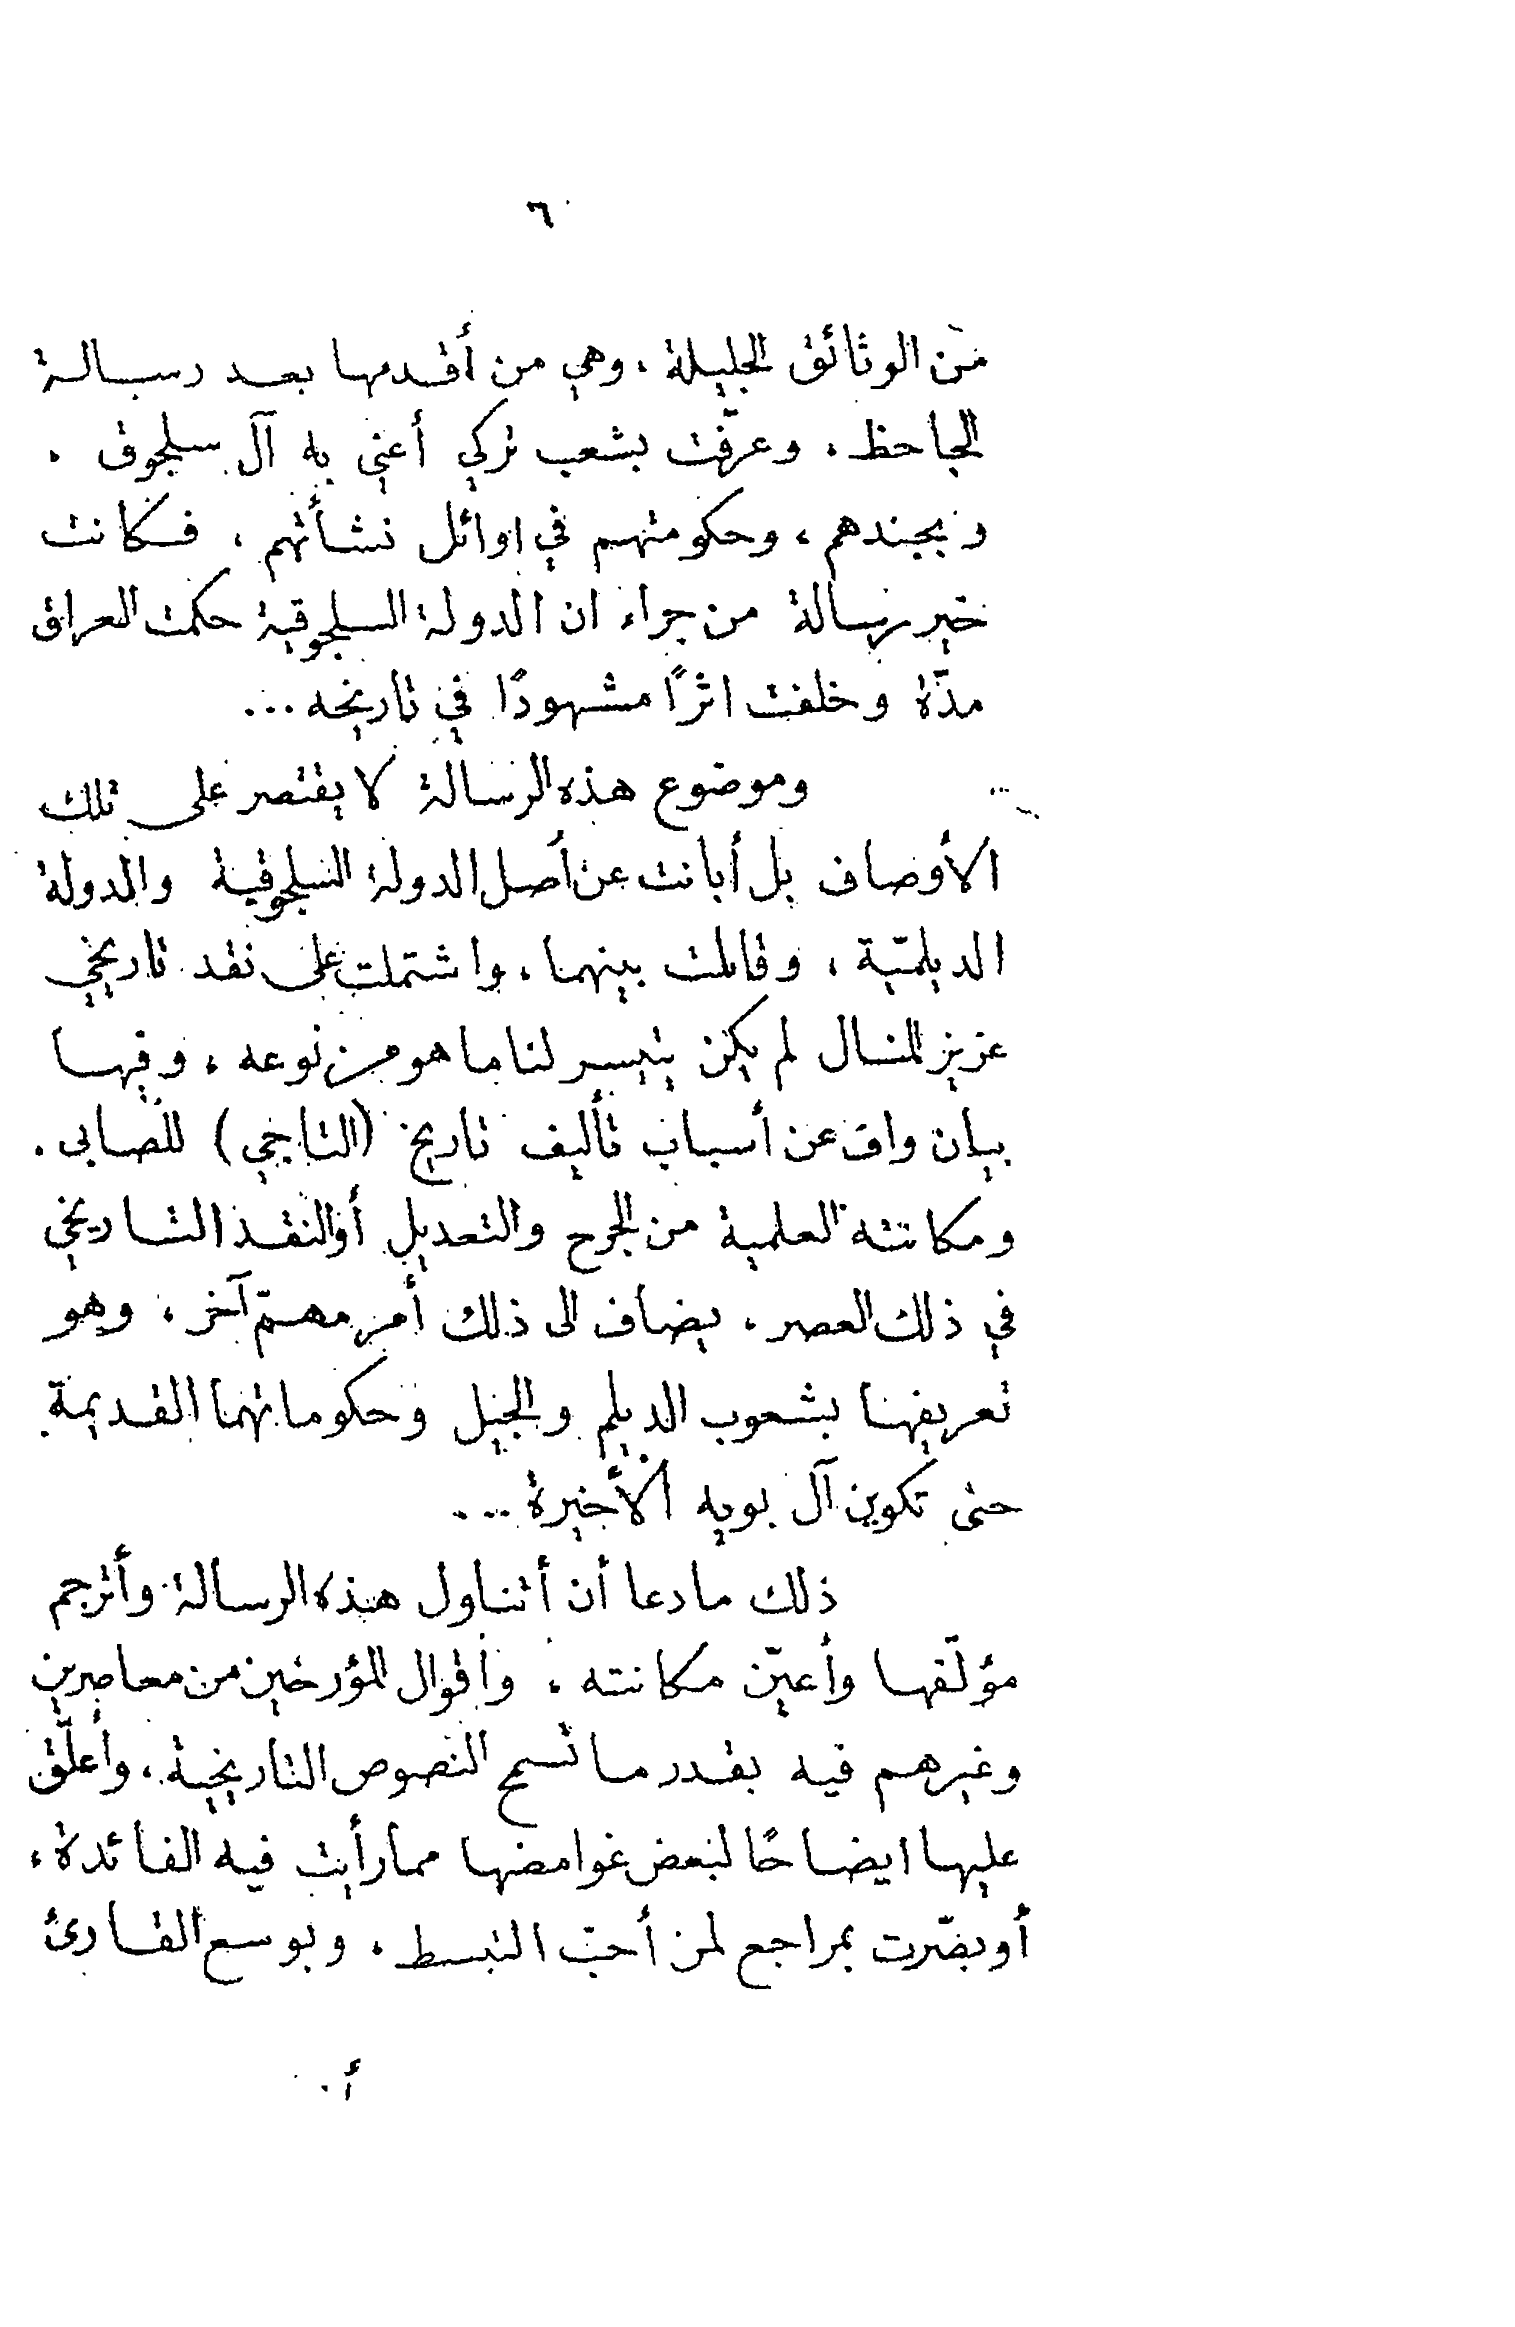 ٦
من الوثائق الجليلة، وهي من أقدمها بعد رسالة
الجاحظ، وعرّفت بشعب تركي أعني به آل سلجوق،
وبجندهم، وحكومتهم في اوائل نشأتهم، فكانت
خير رسالة من جراء ان الدولة السلجوقية حكمت العراق
مدّة وخلفت اثرًا مشهودًا في تاريخه...
وموضوع هذه الرسالة لا يقتصر على تلك
الأوصاف بل أبانت عن أصل الدولة السلجوقية والدولة
الديلميّة، وقابلت بينهما، واشتملت على نقد تاريخي
عزيز المنال لم يكن يتيسر لنا ما هو من نوعه، وفيها
بيان واف عن أسباب تأليف تاريخ (التاجي) للصابي.
ومكانته العلمية من الجرح والتعديل أو النقد التاريخي
في ذلك العصر، يضاف الى ذلك أمر مهمّ آخر، وهو
تعريفها بشعوب الديلم والجيل وحكوماتهما القديمة.
حتى تكوين آل بويه الأخيرة...
ذلك ما دعا أن أتناول هذه الرسالة وأترجم
مؤلّفها وأعيّن مكانته، وأقوال المؤرخين من معاصرين
وغيرهم فيه بقدر ما تسمح النصوص التاريخية، وأعلّق
عليها ايضاحًا لبعض غوامضها مما رأيت فيه الفائدة،
أو بصّرت بمراجع لمن أحبّ التبسط، وبوسع القارئ
أ.